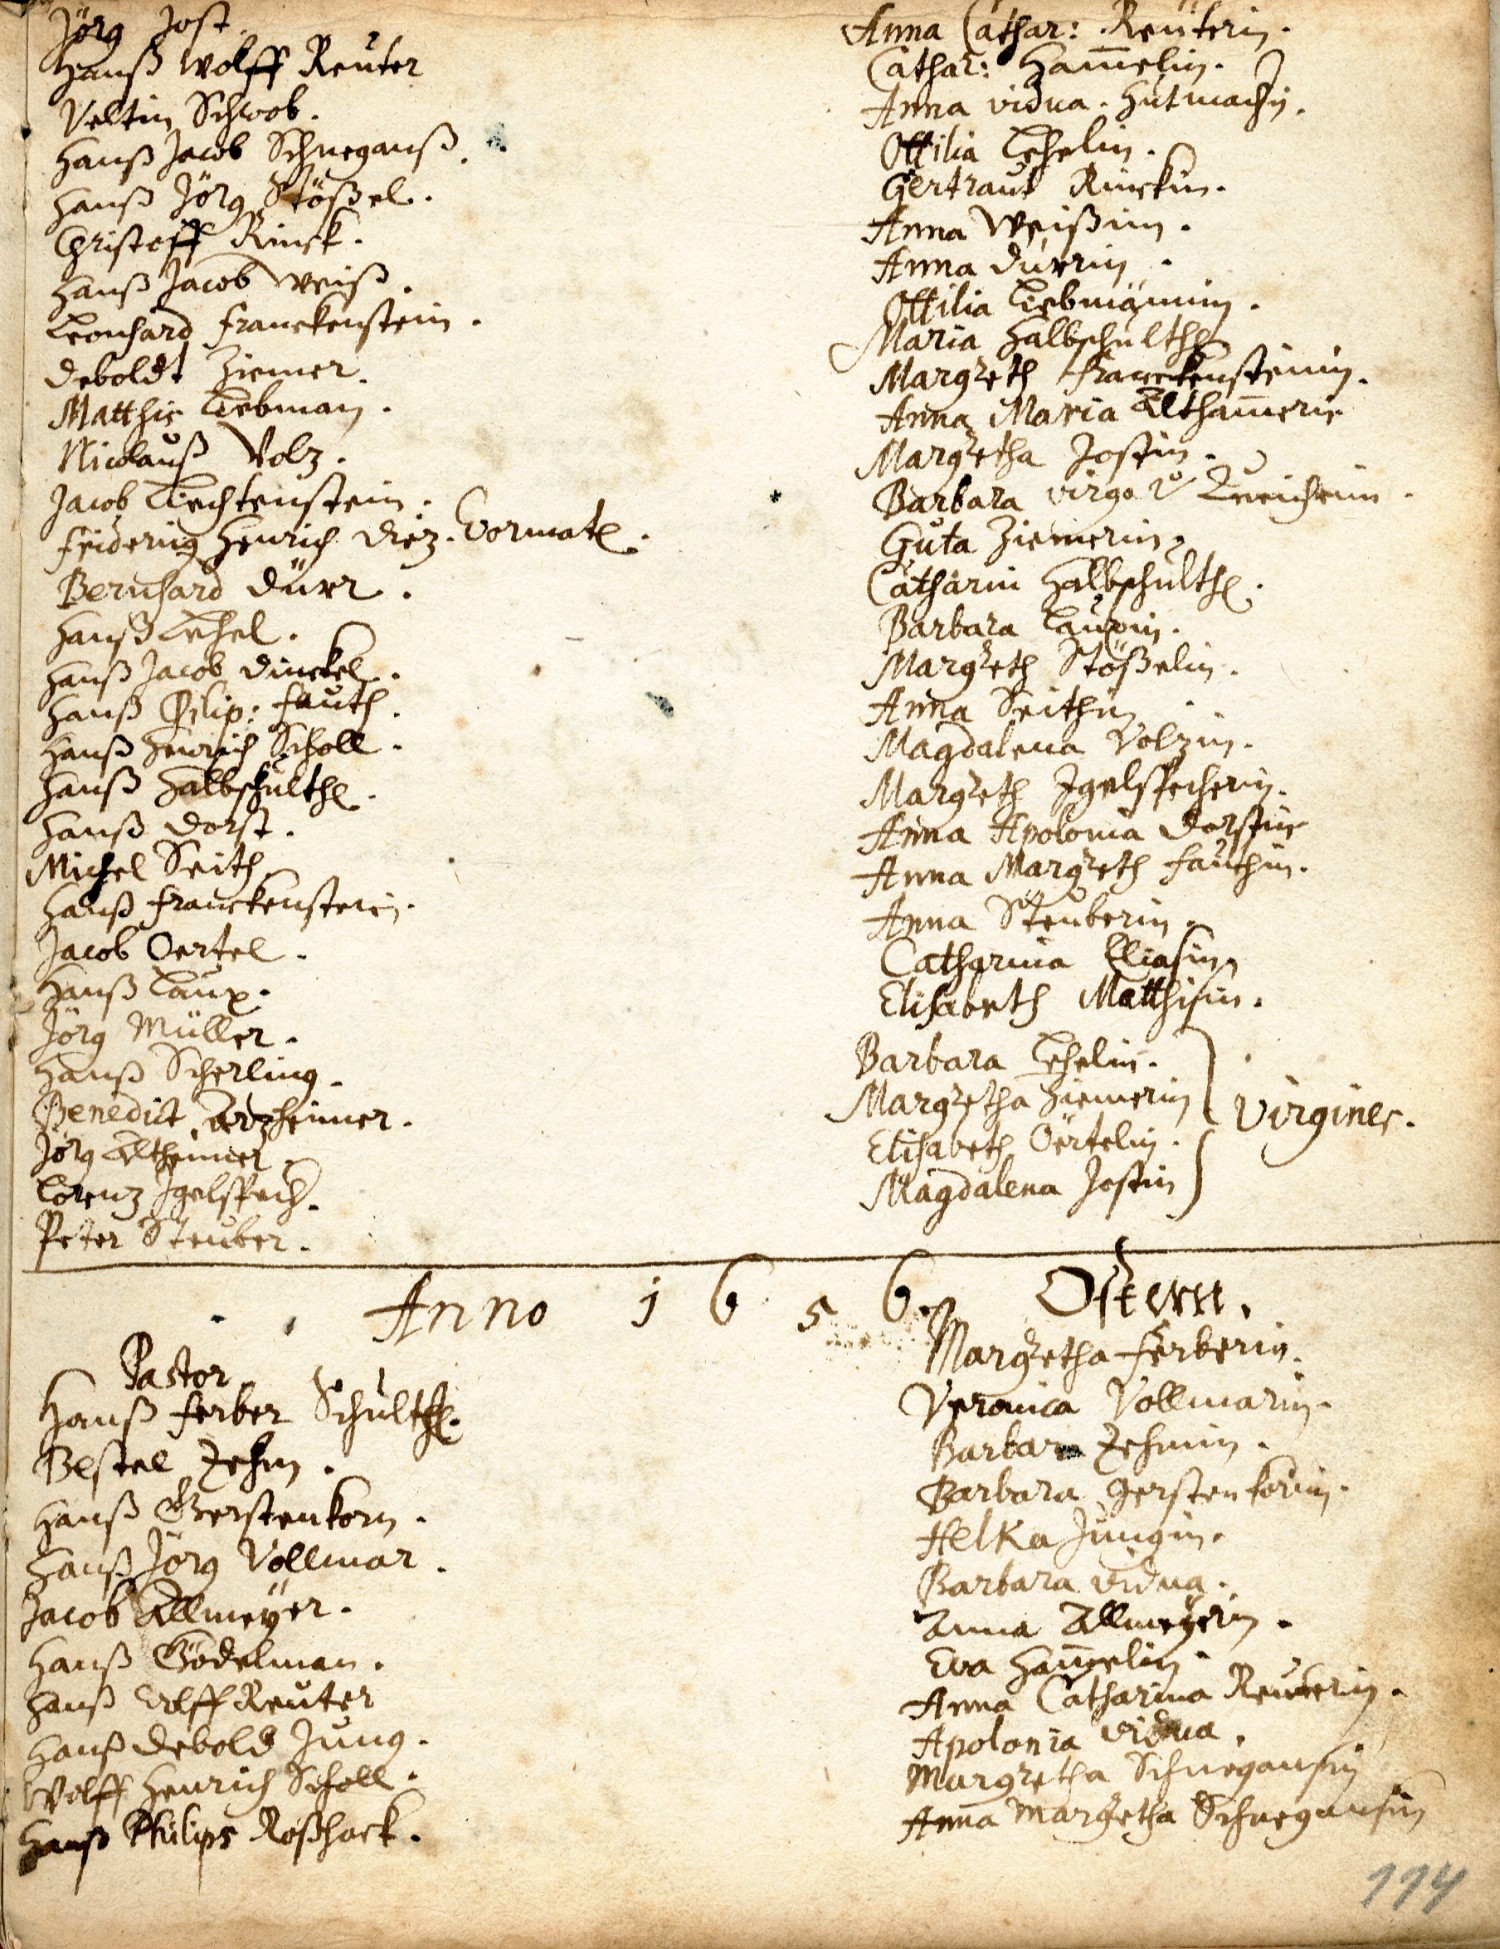 Jörg Jost.
Hanß Wolff Reuter
Veltin Schwob.
Hanß Jacob Schneganß.
Hanß Jörg Stößel.
Christoff Rinck.
Hanß Jacob Weiß.
Leonhard Franckenstein.
Deboldt Ziemer.
Matthis Liebman.
Nicolauß Volz.
Jacob Liechtenstein.
Friderich Henrich Diez.
Bernhard Dürr.
Hanß Lehel.
Hanß Jacob Dinckel.
Hanß Philip: Fauth.
Hanß Henrich Scholl.
Hanß Halbschulth.
Hanß Dorst.
Michel Seith.
Hanß Franckenstein.
Jacob Oertel.
Hanß Laux.
Jörg Müller.
Hanß Scherling.
Benedict Arzheimer.
Jörg Altheimer.
Lorenz Igelspach.
Peter Steuber.
Anna Cathar: Reüterin.
Cathar: Ham̅elin.
Anna vidua. Hutmachin.
Ottilia Lehelin.
Gertraut Rinckin.
Anna Weißin.
Anna Dürrin.
Ottilia Liebmännin.
Maria Halbschulth
Margreth Franckensteinin.
Anna Maria Altham̅erin
Margretha Jostin.
Barbara virgo
Guta Ziemerin.
Catharin Halbschulth.
Barbara Lauxin.
Margreth Stößelin.
Anna Seithin
Magdalena Volzin.
Margreth Igelspacherin.
Anna Apolonia Dorstin
Anna Margreth Fauthin.
Anna Steuberin.
Catharina Eliasin.
Elisabeth Matthisin.
Barbara Lehelin.
Margretha Ziemerin
Elisabeth Oertelin.
Magdalena Jostin
Virgines.
Anno 1656. Ostern.
Pastor
Hanß Ferber Schulth.
Bestel Zehm.
Hanß Gerstenkorn.
Hanß Jörg Vollmar.
Jacob Allmeÿer.
Hanß Gödelman.
Hanß Wolff Reuter
Hanß Debold Jung.
Wolff Henrich Scholl.
Hanß Philips Roßhack.
Margretha Ferberin.
Veronica Vollmarin.
Barbara Zehmin.
Barbara Gerstenkorin.
Helka Jungin.
Barbara vidua.
Anna Allmeÿerin.
Eva Ham̅elin.
Anna Catharina Reuterin.
Apolonia vidua.
Margretha Schnegansin
Anna Margretha Schnegansin
114